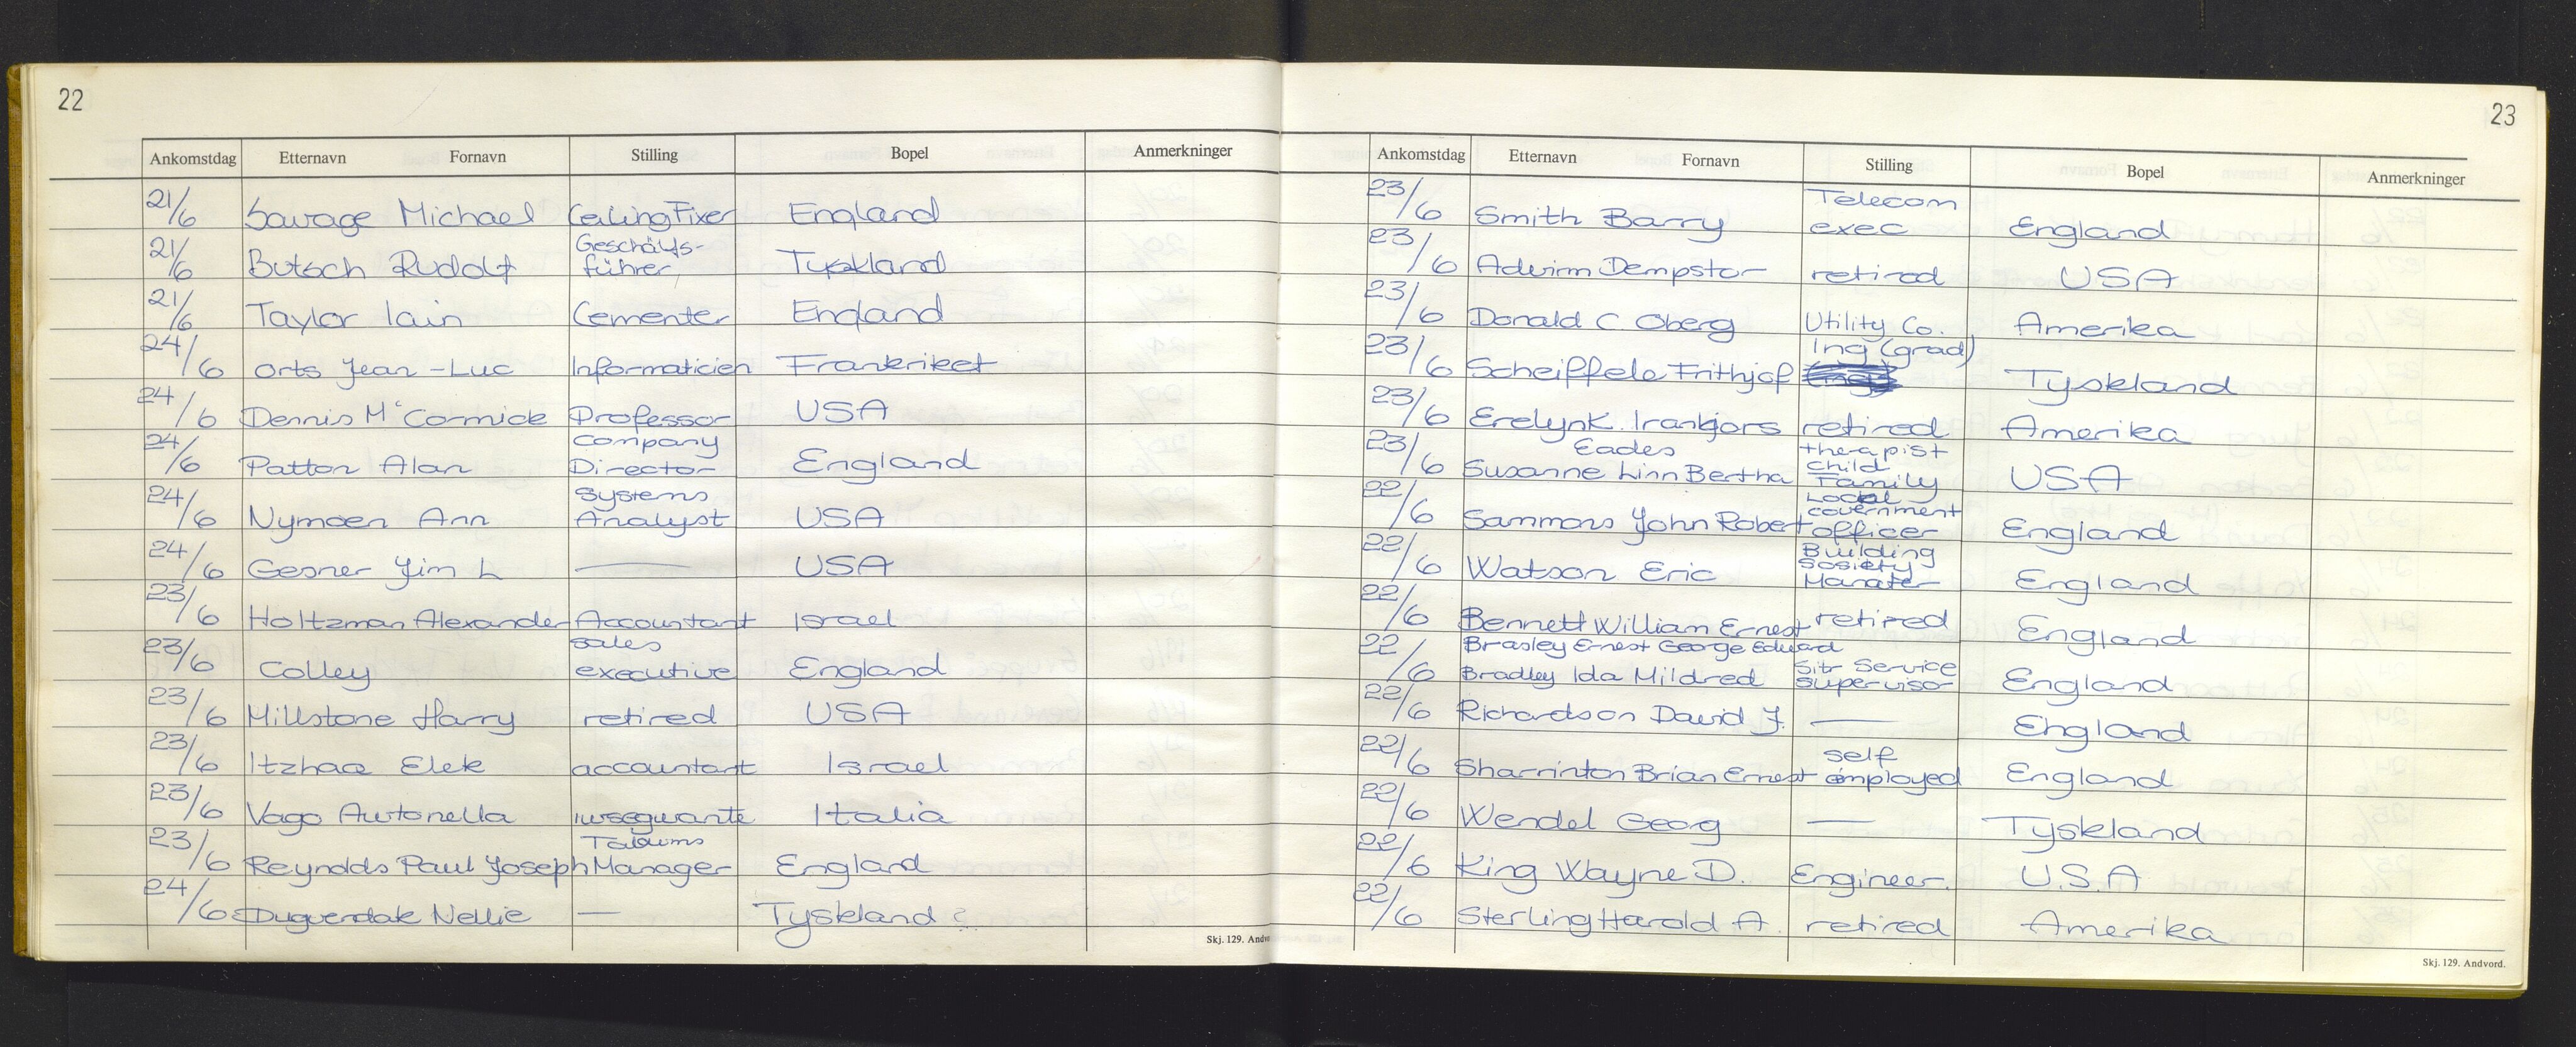 22
Ankomstdag Etternavn Fornavn Stilling Bopel Anmerkninger
21/6 Savage Michael Ceiling Fixer England
21/6 Butsch Rudolf Geschäfts-führer Tyskland
21/6 Taylor Iain Cementer England
24/6 Orts Jean-Luc Informaticien Frankriket
24/6 Dennis McCormick Professor USA
24/6 Patton Alan Company Director England
24/6 Nymoen Ann Systems Analyst USA
24/6 Gesner Jim L — USA
23/6 Holtzman Alexander Accountant Israel
23/6 Colley sales executive England
23/6 Millstone Harry retired USA
23/6 Itzhac Elek accountant Israel
23/6 Vago Autonella iusegnante Italia
23/6 Reynolds Paul Joseph Manager England
24/6 Nellie — Tyskland ?
Skj. 129. Andvo
23
Ankomstdag Etternavn Fornavn Stilling Bopel Anmerkninger
23/6 Smith Barry Telecom exec England
23/6 Dempster retired USA
23/6 Donald C Oberg Utility Co. Amerika
23/6 Scheiffele Frithjof Ing (grad) Tyskland
23/6 retired Amerika
23/6 Eades Susanne Linn Bertha therapist child Family USA
22/6 Sammons John Robert Local Government officer England
22/6 Watson Eric Building Sosiety Manater England
22/6 Bennett William Ernest retired England
22/6 Brasley Ernest George Edward
Bradley Ida Mildred Sitr Service supervisor England
22/6 Richardson David J. — England
22/6 Sharrinton Brian Ernest self employed England
22/6 Wendel Georg — Tyskland
22/6 King Wayne D. Engineer. U.S.A
22/6 Sterling Harold A. retired Amerika
Skj. 129. Andvord.